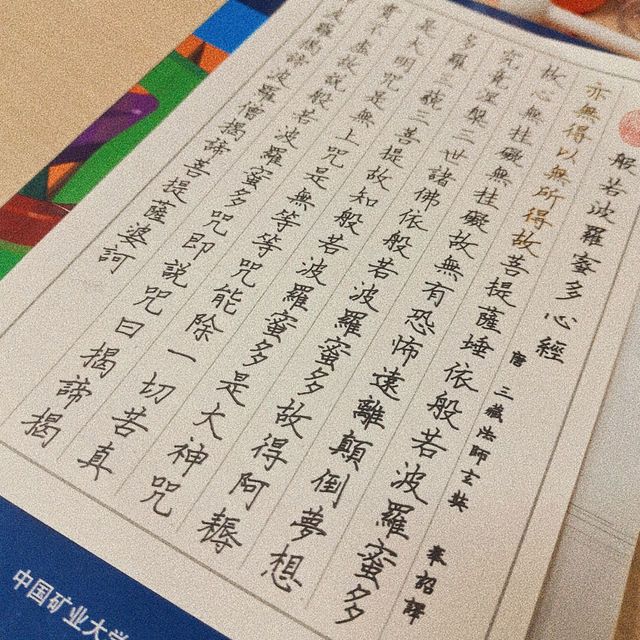 般若波羅蜜多心經
唐 三藏法師玄奘 奉詔譯
亦無得以無所得故菩提薩埵依般若波羅蜜多
故心無挂礙無挂礙故無有恐怖遠離顛倒夢想
究竟涅槃三世諸佛依般若波羅蜜多故得阿耨
多羅三藐三菩提故知般若波羅蜜多是大神咒
是大明咒是無上咒是無等等咒能除一切苦真
實不虛故說般若波羅蜜多咒即說咒曰揭諦揭
波羅揭諦波羅僧揭諦菩提薩婆訶
中国矿业大学